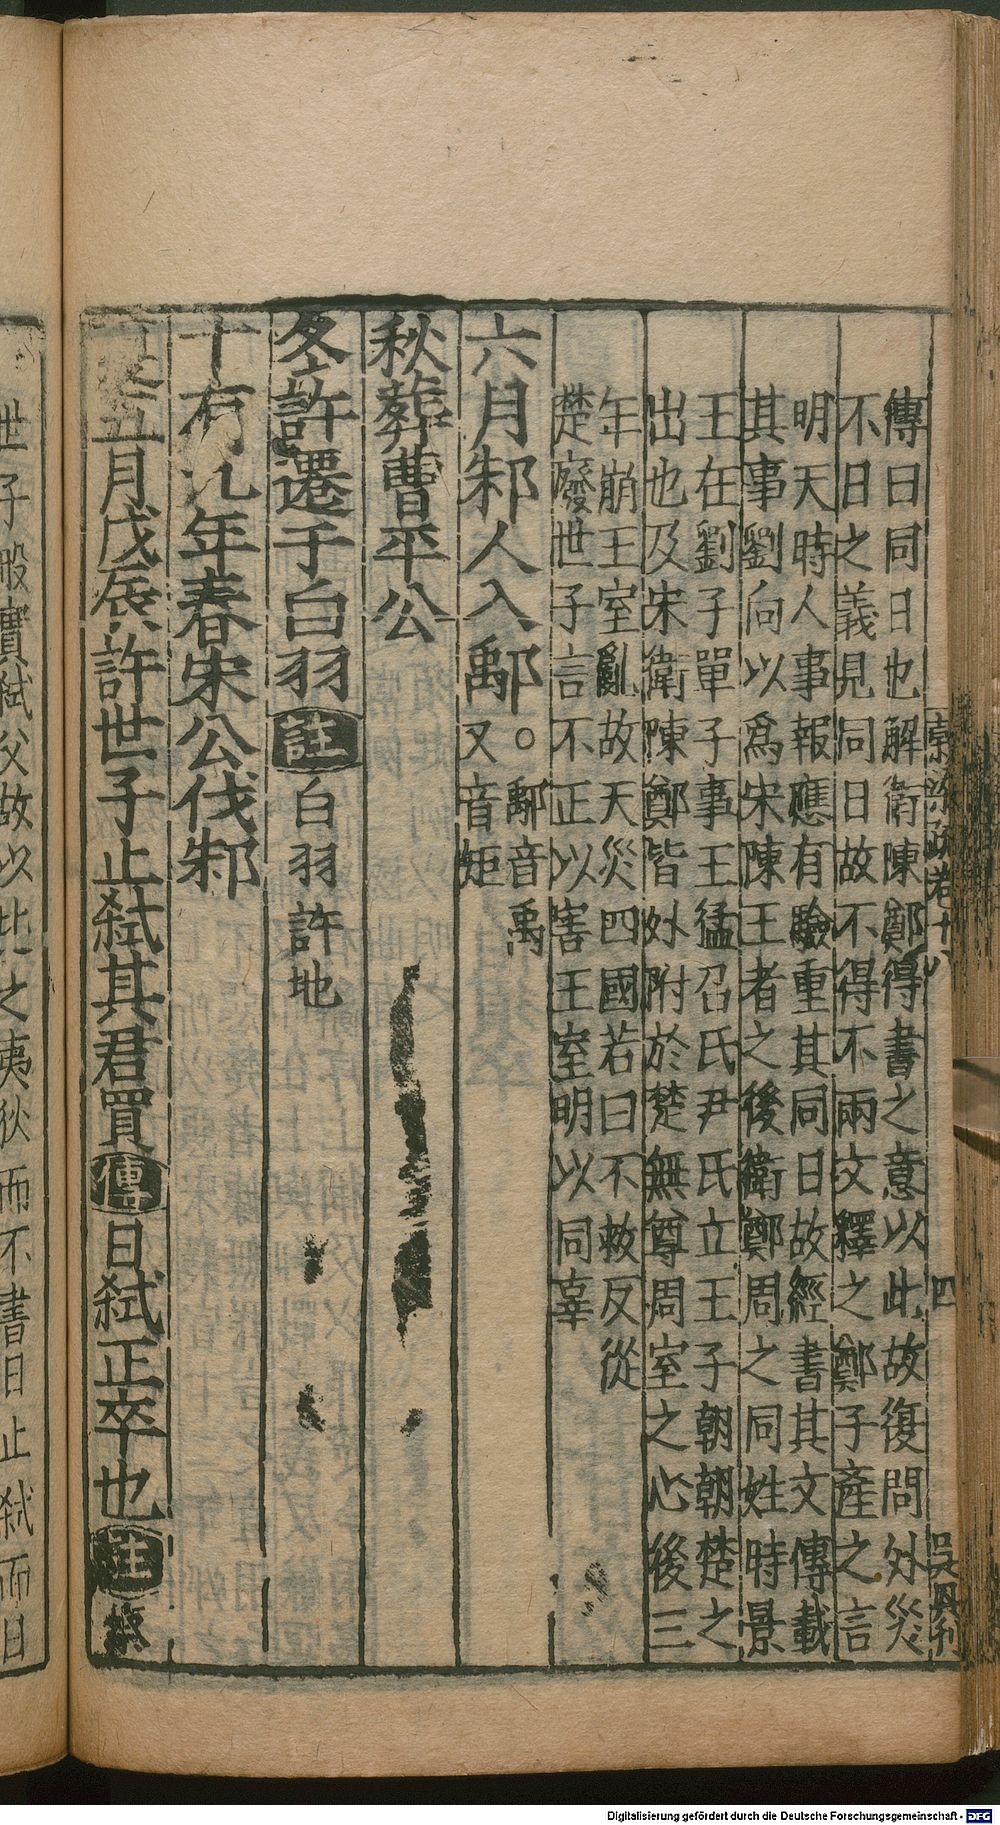 傳曰同日也解衛陳鄭得書之意以此故復問外災
不日之義見同日故不得不兩文釋之鄭子產之言
明天時人事報應有驗重其同日故經書其文傳載
其事劉向以爲宋陳王者之後衛鄭周之同姓時景
王在劉子單子事王猛召氏尹氏立王子朝朝楚之
出也及宋衛陳鄭皆外附於楚無尊周室之心後三
年崩王室亂故天災四國若曰不救反從
楚廢世子言不正以害王室明以同辜
六月邾人入鄅。鄅音禹
又音矩
秋葬曹平公
冬許遷于白羽註白羽許地
十有九年春宋公伐邾
夏五月戊辰許世子止弒其君買傳日弒正卒也註
世子般實弒父故以比之夷狄而不書日止弒而日
疏卷十八
四
吳興刊
Digitalisierung gefördert durch die Deutsche Forschungsgemeinschaft - DFG